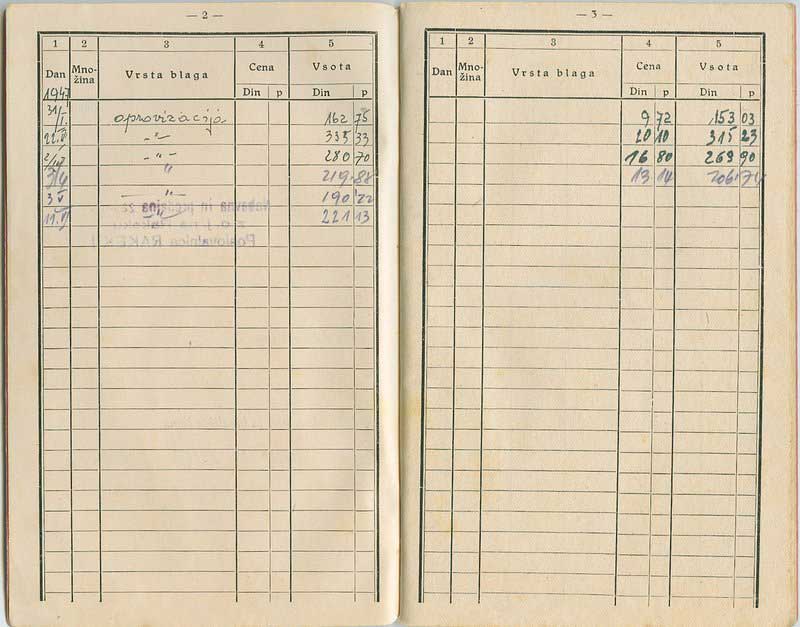 — 2 —
1 2 3 4 5
Dan Mno-žina Vrsta blaga Cena Vsota
Din p Din p
1947
31/I. aprovizacija 162 75
22.II -"- 335 33
2/IV -"- 280 70
3/4 " 219.88
3 V -"- 190 22
11.VI " 221 13
Nabavna in prodajna za-
z o. j. na Rakeku
Poslovalnica RAKEK I
— 3 —
1 2 3 4 5
Dan Mno-žina Vrsta blaga Cena Vsota
Din p Din p
9 72 153 03
20 10 315 23
16 80 263 90
13 14 206 74